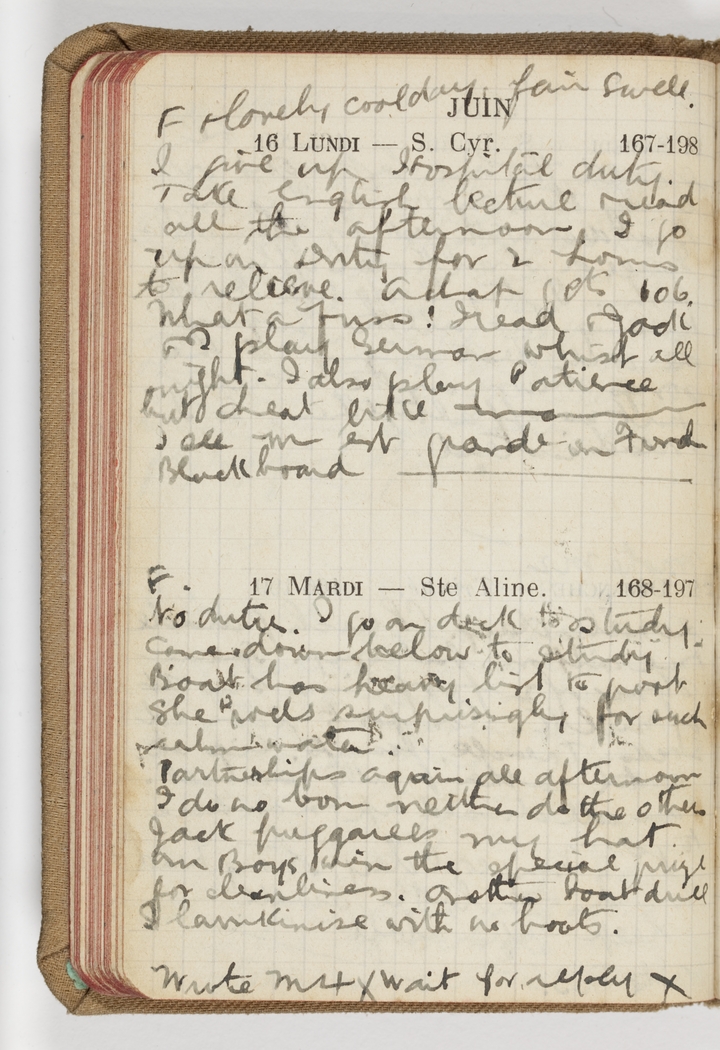 F lovely cool day fair swell.
JUIN
16 LUNDI — S. Cyr. 167-198
I give up Hospital duty.
Take English lecture read
all the afternoon. I go
up on duty for 2 hours
to relieve. A chap gets 106.
What a fuss! I read & Jack
& I play German whist all
night. I also play Patience
but cheat like
I see on est garde on
Blackboard
F.
17 MARDI — Ste Aline. 168-197
No duties. I go on deck to study.
Come down below to study
Boat has heavy list to port
She rolls surprisingly for such
calm water.
Partnerships again all afternoon
I do no bon neither do the others
Jack puggarees my hat.
our Boys win the special prize
for cleanliness. Another boat drill
I with no boots.
Wrote X Wait for reply X